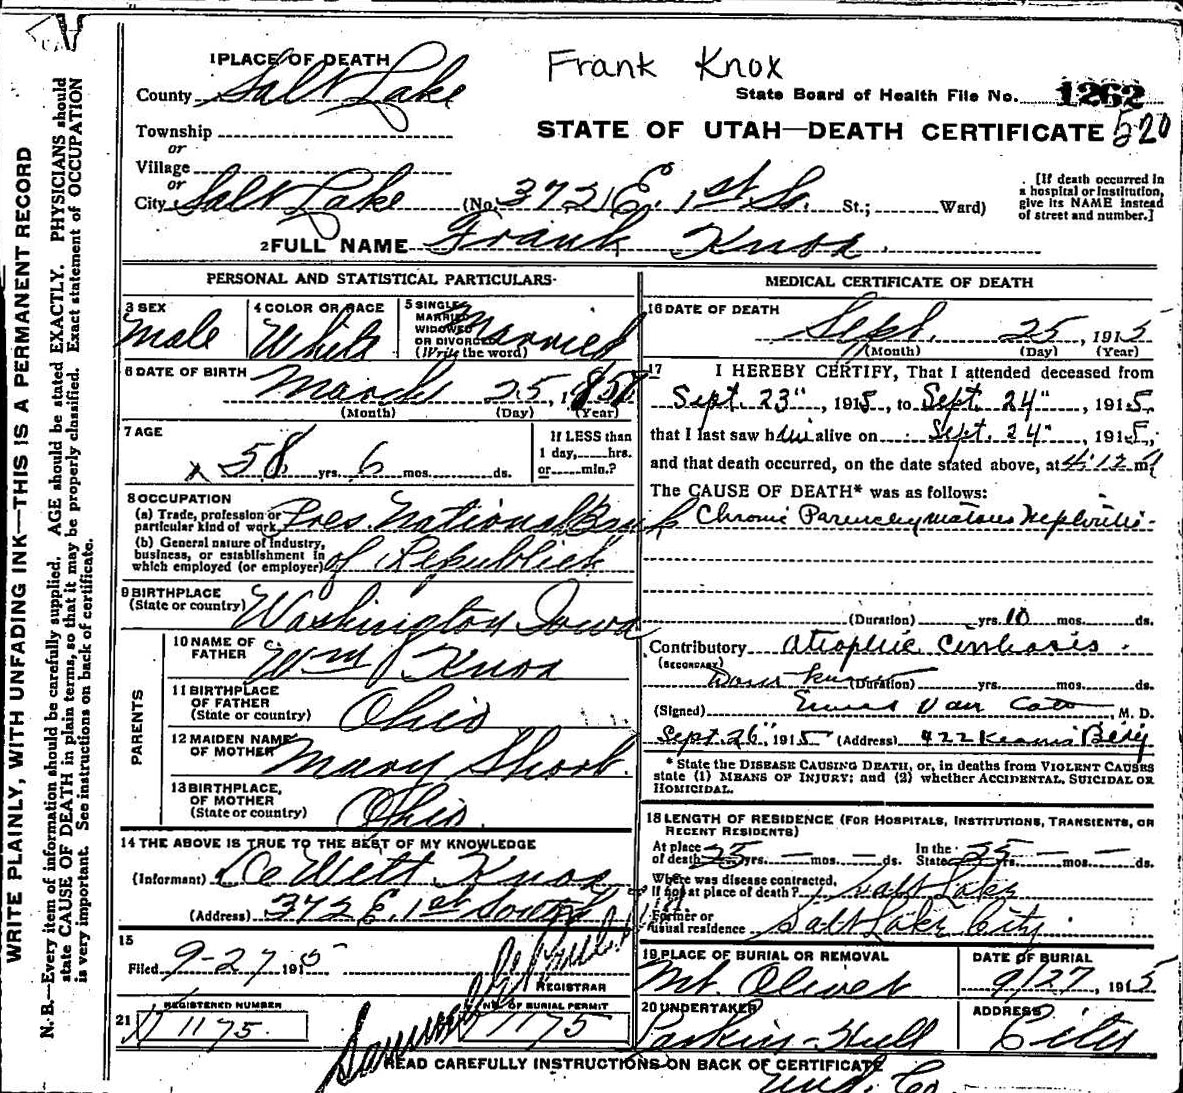 Frank Knox
1 PLACE OF DEATH
County Salt Lake
State Board of Health File No. 1262
Township
STATE OF UTAH—DEATH CERTIFICATE 520
or
Village
or
City Salt Lake (No. 372 E. 1st So. St.; Ward)
[If death occurred in
a hospital or institution,
give its NAME instead
of street and number.]
2 FULL NAME Frank Knox.
PERSONAL AND STATISTICAL PARTICULARS
3 SEX
Male
4 COLOR OR RACE
White
5 SINGLE
MARRIED
WIDOWED
OR DIVORCED
(Write the word)
Married
6 DATE OF BIRTH
March 25, 1857
(Month) (Day) (Year)
7 AGE
58 yrs. 6 mos. ds.
If LESS than
1 day, hrs.
or min.?
8 OCCUPATION
(a) Trade, profession or
particular kind of work Pres. National Bank
(b) General nature of industry,
business, or establishment in
which employed (or employer) of Republick
9 BIRTHPLACE
(State or country) Washington Iowa
PARENTS
10 NAME OF
FATHER Wm Knox
11 BIRTHPLACE
OF FATHER
(State or country) Ohio
12 MAIDEN NAME
OF MOTHER Mary Shorb.
13 BIRTHPLACE,
OF MOTHER
(State or country) Ohio.
14 THE ABOVE IS TRUE TO THE BEST OF MY KNOWLEDGE
(Informant) De Witt Knox
(Address) 372 E. 1st South
15
Filed 9-27 1915
REGISTRAR
REGISTERED NUMBER
NO. OF BURIAL PERMIT
21 1175. 1175
MEDICAL CERTIFICATE OF DEATH
16 DATE OF DEATH
Sept. 25, 1915
(Month) (Day) (Year)
17 I HEREBY CERTIFY, That I attended deceased from
Sept. 23", 1915, to Sept. 24", 1915,
that I last saw him alive on Sept. 24", 1915,
and that death occurred, on the date stated above, at 4:12 m
The CAUSE OF DEATH* was as follows:
Chronic Parenchymatous Nephritis.
(Duration) yrs. 10 mos. ds.
Contributory Atrophic Cirrhosis.
(SECONDARY)
(Duration) yrs. mos. ds.
(Signed) Van Cott, M. D.
Sept. 26", 1915 (Address) 422 Kearns Bldg
* State the DISEASE CAUSING DEATH, or, in deaths from VIOLENT CAUSES
state (1) MEANS OF INJURY; and (2) whether ACCIDENTAL, SUICIDAL OR
HOMICIDAL.
18 LENGTH OF RESIDENCE (FOR HOSPITALS, INSTITUTIONS, TRANSIENTS, OR
RECENT RESIDENTS)
At place
of death 25 yrs. — mos. — ds.
In the
State yrs. — mos. — ds.
Where was disease contracted,
If not at place of death? Salt Lake
Former or
usual residence Salt Lake City.
19 PLACE OF BURIAL OR REMOVAL
Mt. Olivet
DATE OF BURIAL
9/27, 1915
20 UNDERTAKER
ADDRESS
City
READ CAREFULLY INSTRUCTIONS ON BACK OF CERTIFICATE
Und. Co.
WRITE PLAINLY, WITH UNFADING INK—THIS IS A PERMANENT RECORD
N. B.—Every item of information should be carefully supplied. AGE should be stated EXACTLY. PHYSICIANS should
state CAUSE OF DEATH in plain terms, so that it may be properly classified. Exact statement of OCCUPATION
is very important. See instructions on back of certificate.